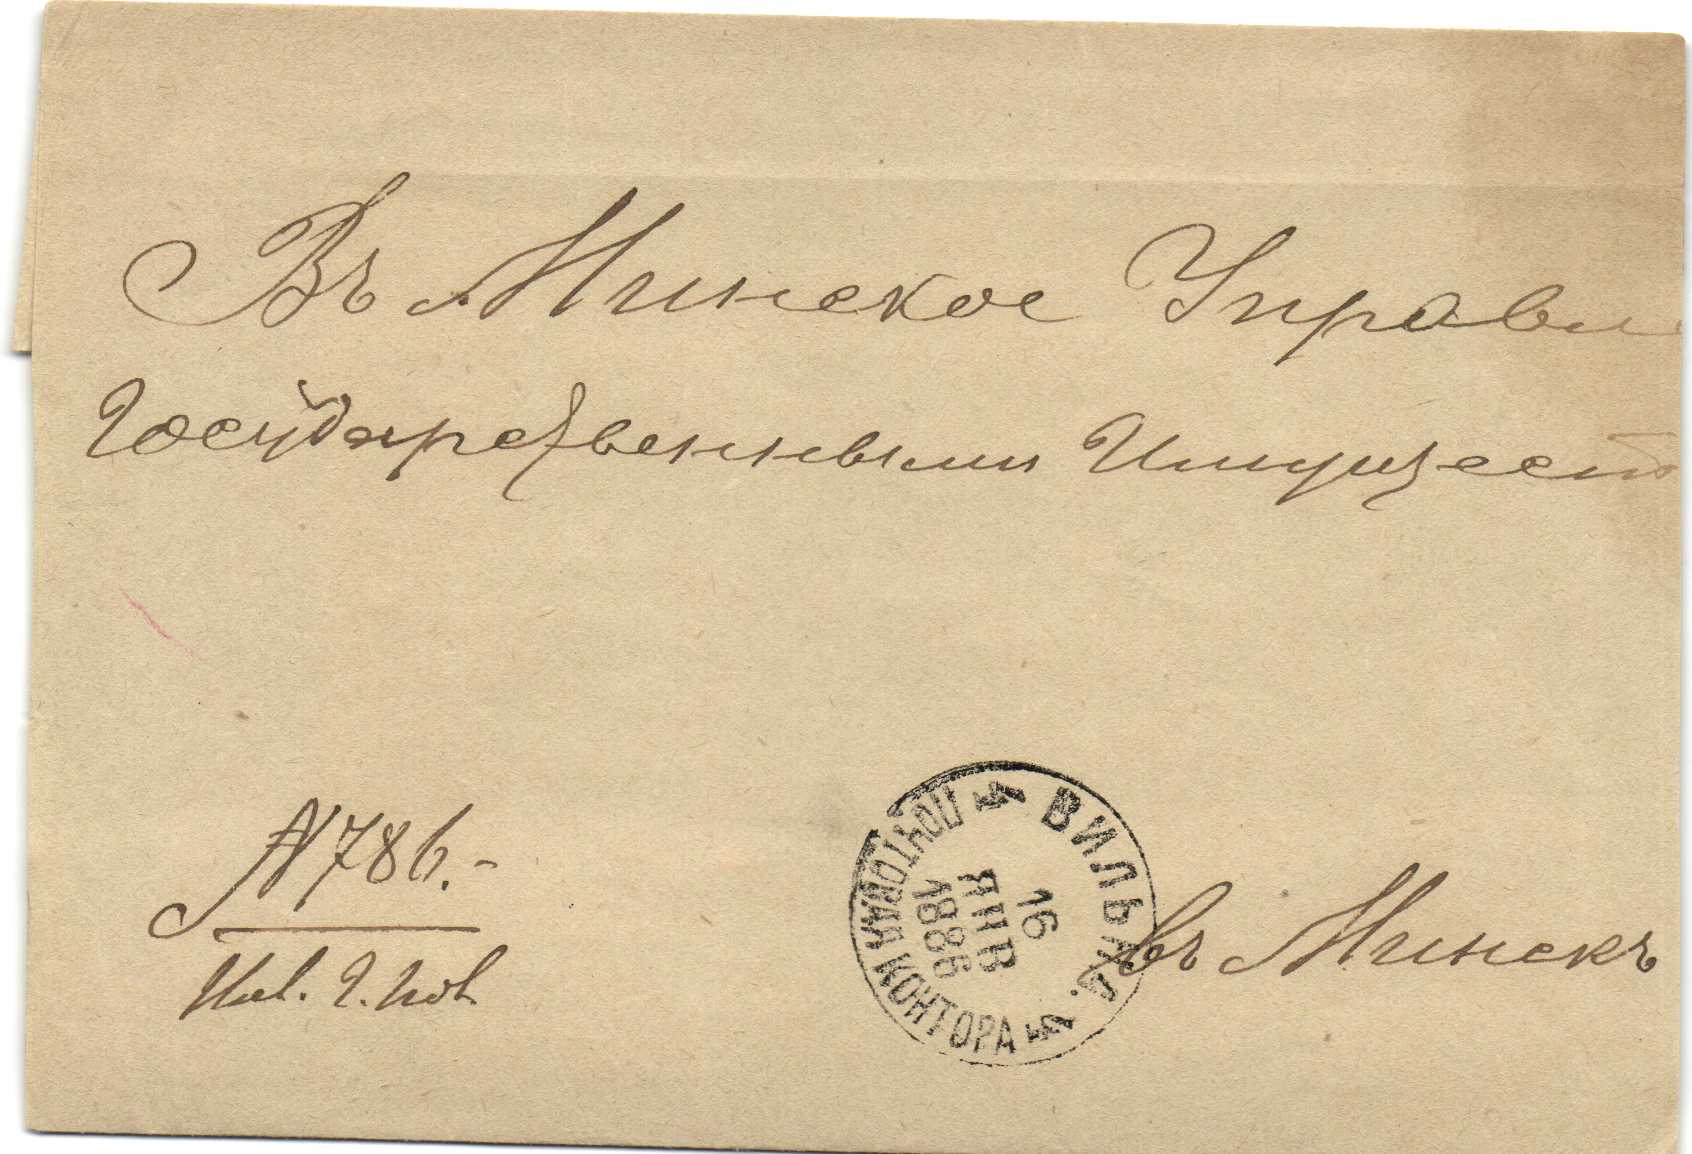 Въ Минское Управл
Государственными Имущест
N 786.-
ВИЛЬНА.
ПОЧТОВАЯ КОНТОРА
16
ЯНВ
1886
въ Минскъ